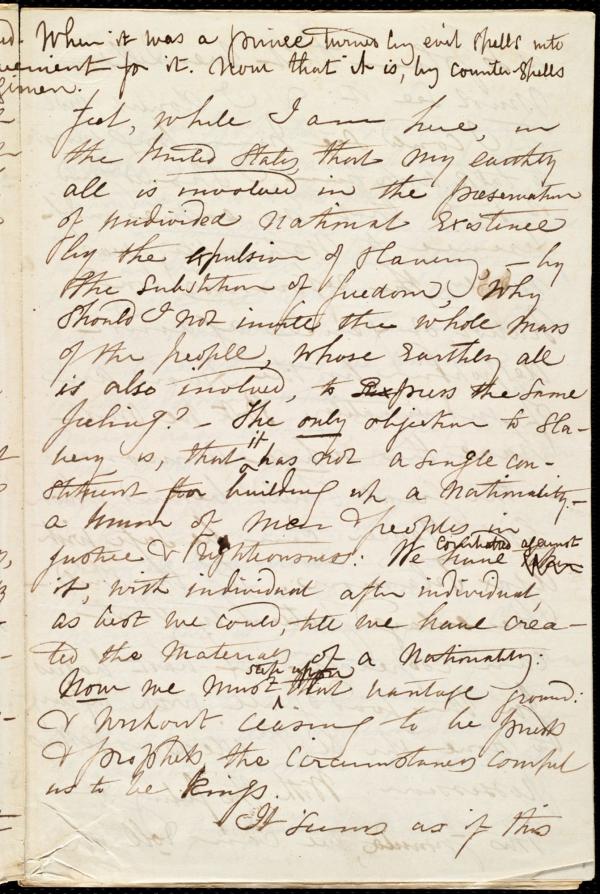 When it was a prince turned by evil spells into
for it. Now that it is, by counter-spells
feel, while I am here, in
the United States, that my earthly
all is involved in the preservation
of undivided national existence
by the expulsion of slavery — by
the substitution of freedom, why
should I not invite the whole mass
of the people, whose earthly all
is also involved, to express the same
feeling? — The only objection to sla-
very is, that it has not a single con-
stituent for building up a Nationality —
a union of men & peoples in
justice & righteousness. We have contended against
it, with individual after individual,
as best we could, till we have crea-
ted the materials of a Nationality.
Now we must step upon that vantage ground:
& without ceasing to be priests
& prophets, the circumstances compel
us to be kings.
It seems as if this